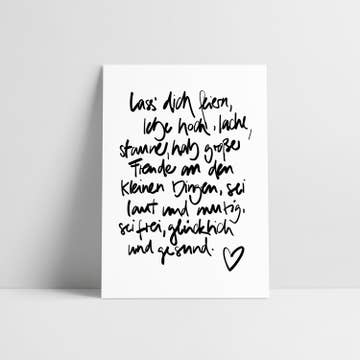 Lass' dich feiern,
lebe hoch, lache,
staune, hab großer
Freude an den
kleinen Dingen, sei
laut und mutig.
sei frei, glücklich
und gesund.